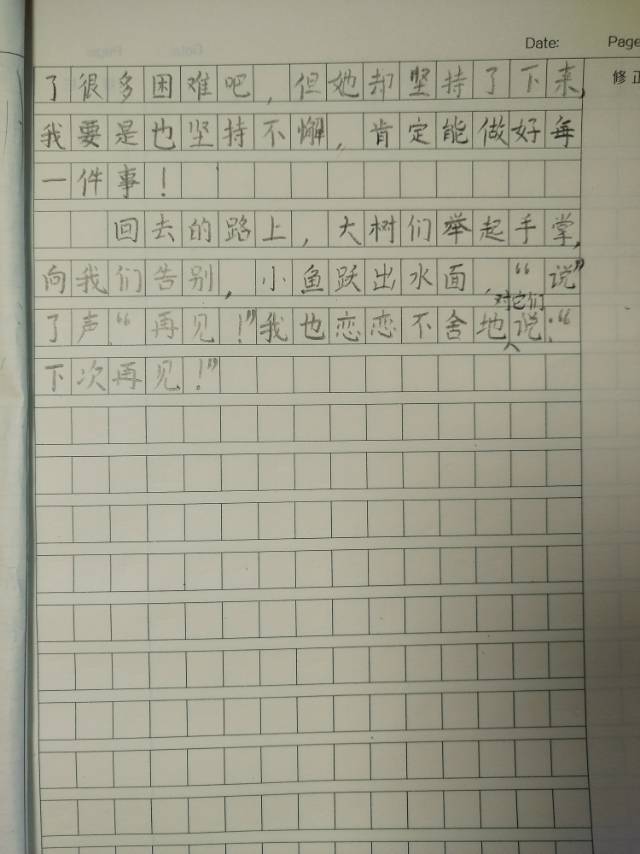 Date: Page
修正
了很多困难吧，但她却坚持了下来，
我要是也坚持不懈，肯定能做好每
一件事！
回去的路上，大树们举起手掌，
向我们告别，小鱼跃出水面，“说”
对它们
了声“再见！”我也恋恋不舍地说：“
下次再见！”